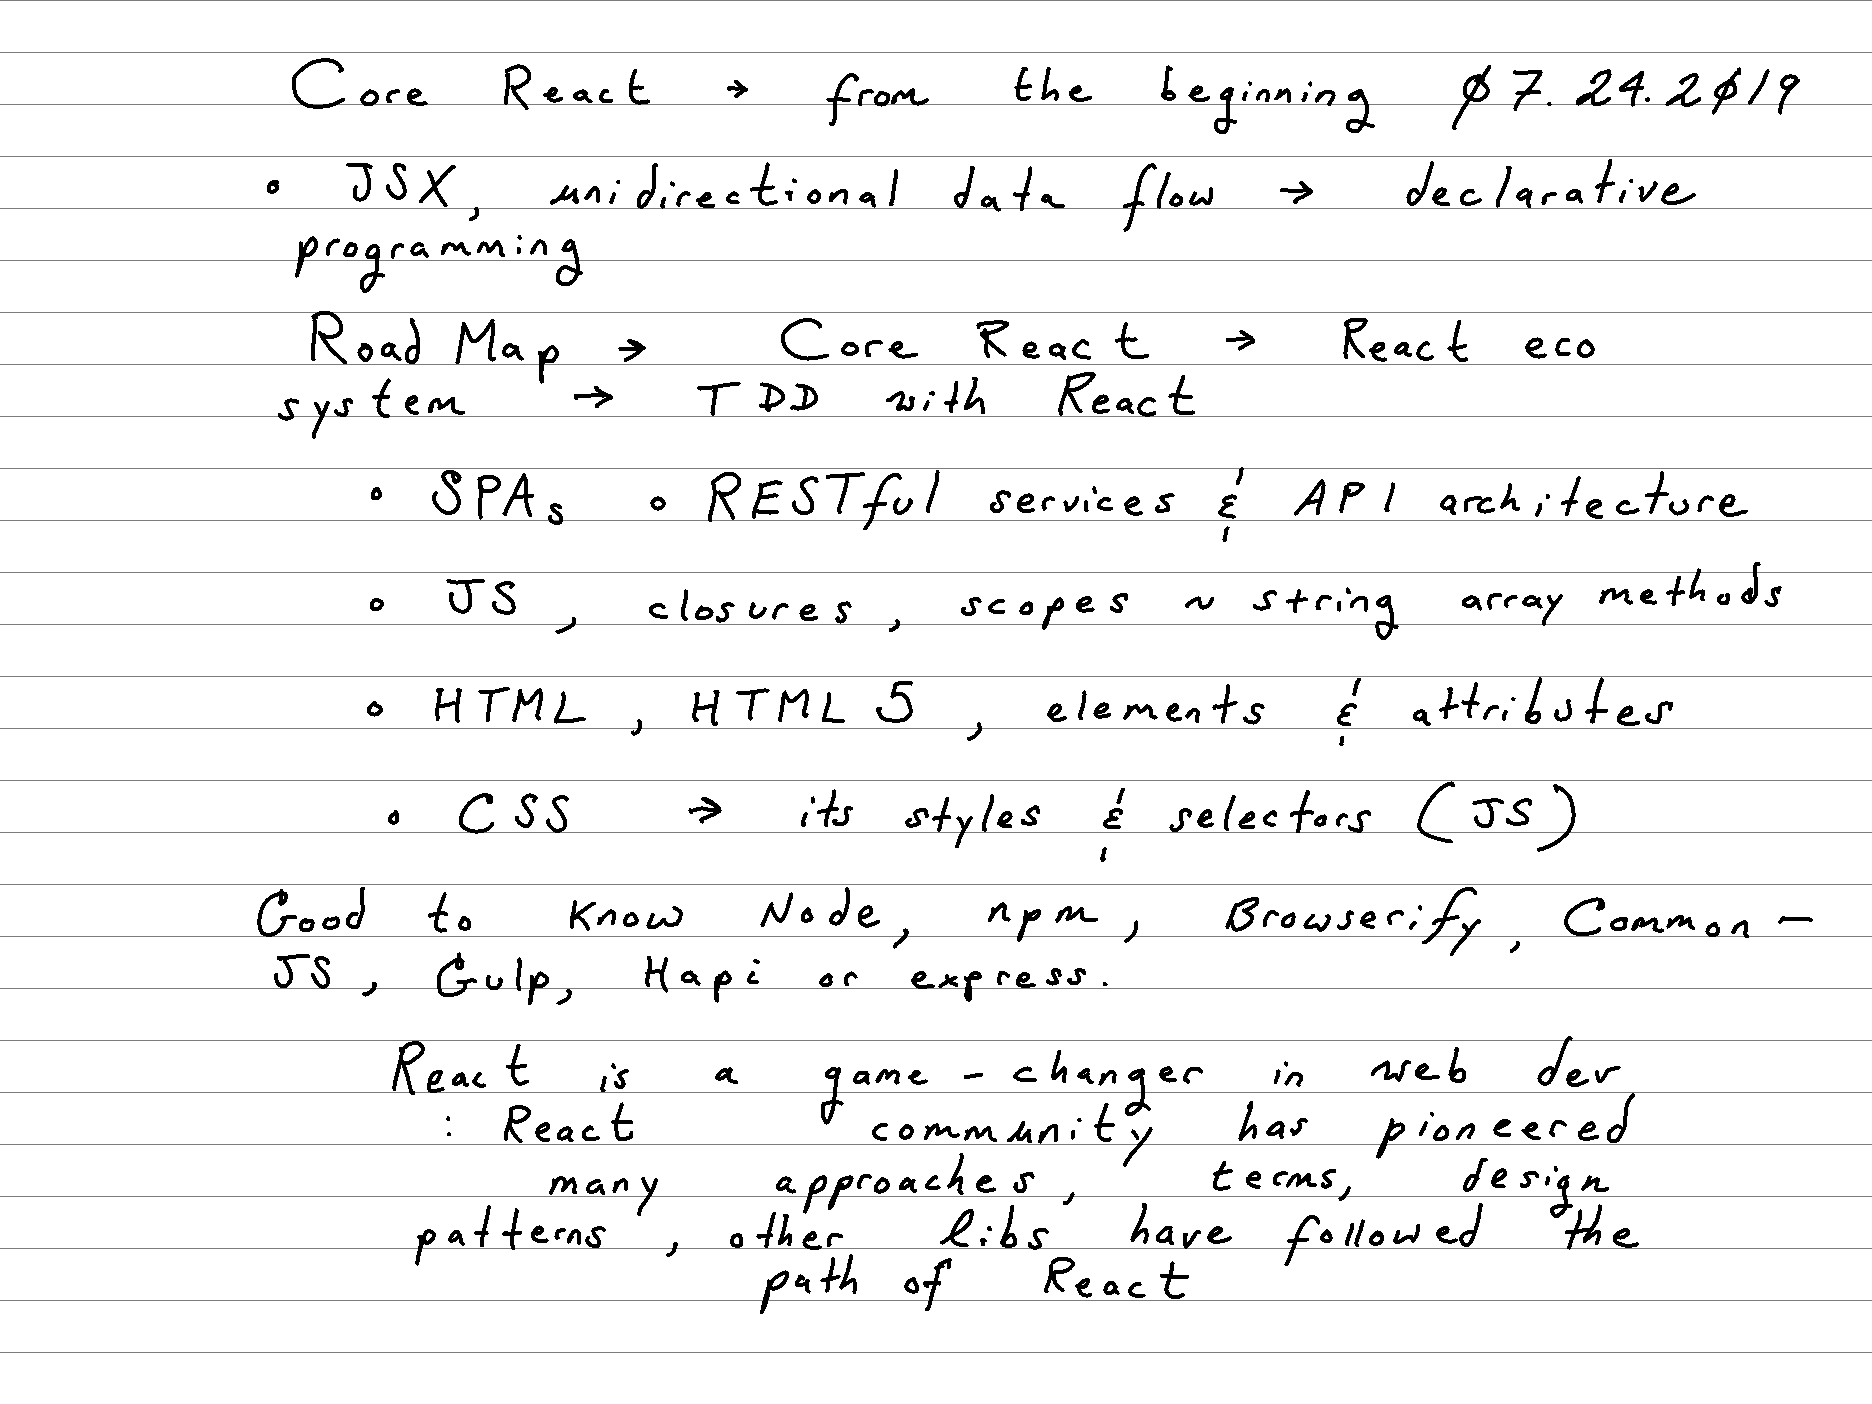 Core React → from the beginning 07.24.2019
• JSX, unidirectional data flow → declarative
programming
Road Map → Core React → React eco
system → TDD with React
• SPAs • RESTful services & API architecture
• JS, closures, scopes ~ string array methods
• HTML, HTML5, elements & attributes
• CSS → its styles & selectors (JS)
Good to know Node, npm, Browserify, Common-
JS, Gulp, Hapi or express.
React is a game-changer in web dev
: React community has pioneered
many approaches, terms, design
patterns, other libs have followed the
path of React